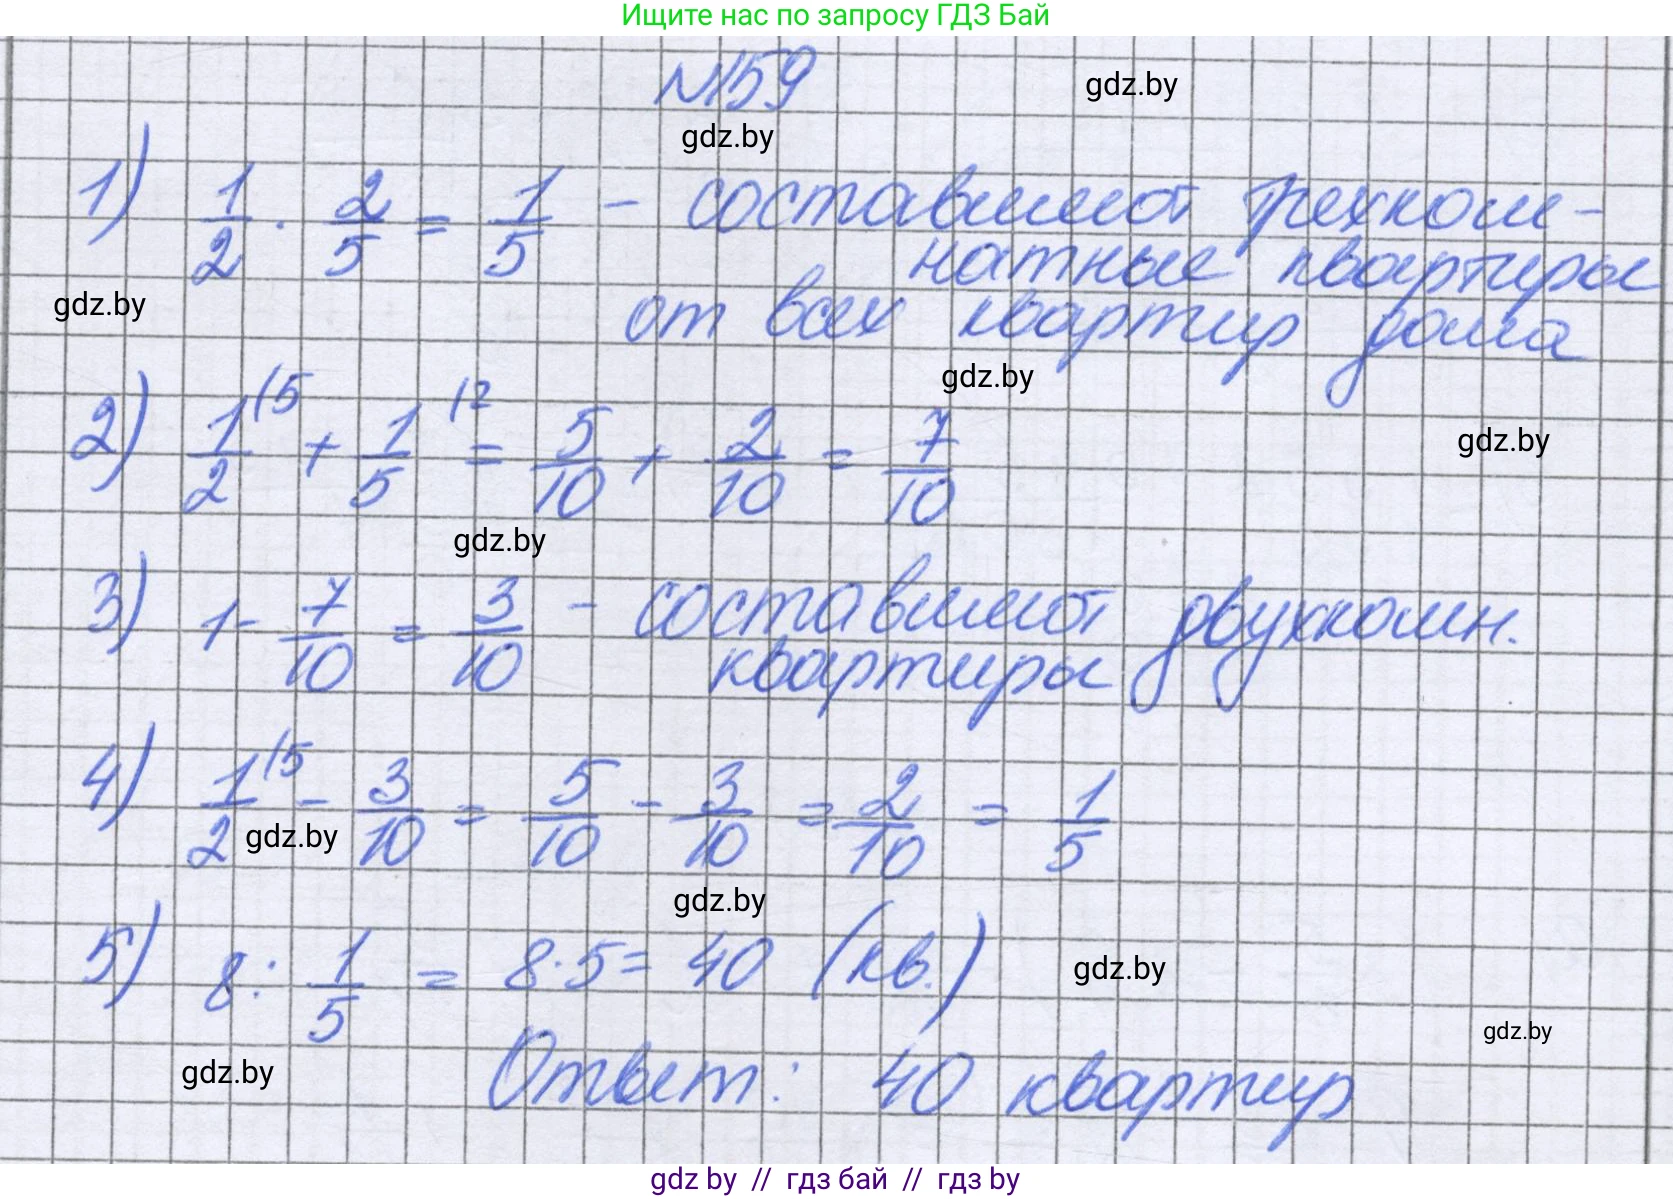 Ищите нас по запросу ГДЗ Бай
№159
gdz.by
gdz.by
1) 1/2 · 2/5 = 1/5 – составляют трехком-
натные квартиры
gdz.by
от всех квартир дома
gdz.by
2) 1/2 (5 + 1/5 (2 = 5/10 + 2/10 = 7/10
gdz.by
gdz.by
3) 1 - 7/10 = 3/10 – составляют двухкомн.
квартиры
4) 1/2 (5 - 3/10 = 5/10 - 3/10 = 2/10 = 1/5
gdz.by
gdz.by
5) 8 : 1/5 = 8·5 = 40 (кв.)
gdz.by
gdz.by
Ответ: 40 квартир
gdz.by
gdz by // гдз бай // гдз by